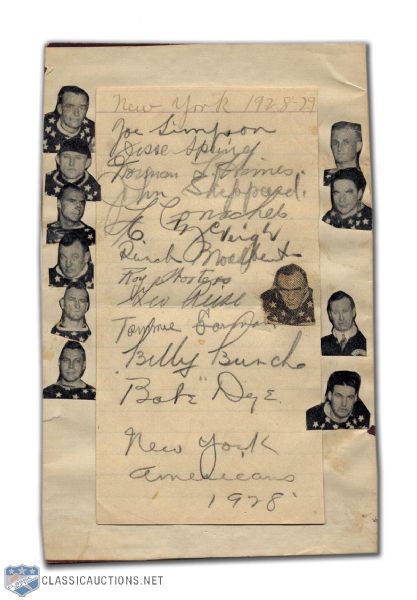 New York 1928-29
Joe Simpson
Jesse Spring
Norman L. Himes
John Sheppard
L. Conacher
C McVeigh
Rinch
Roy Worters
Geo Reise
Tommie Gorman
"Billy" Burch
"Babe" Dye.
New York
Americans
1928
CLASSICAUCTIONS.NET